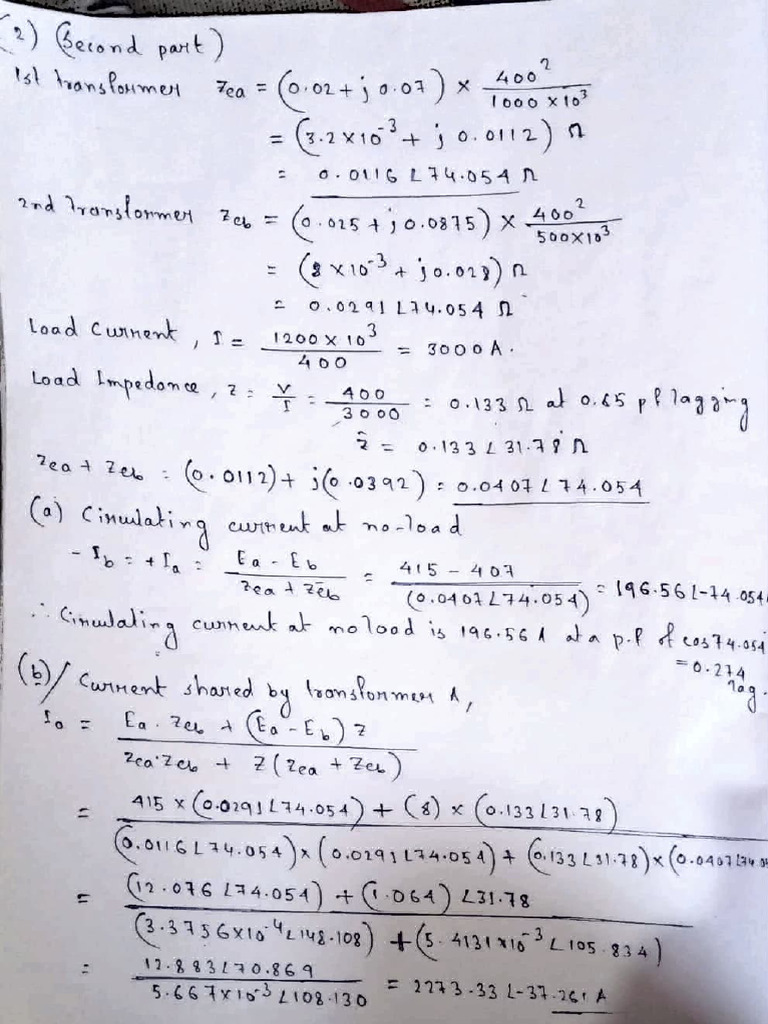 2) (Second part)
1st transformer Zea = (0.02 + j 0.07) × 400² / 1000 × 10³
= (3.2×10⁻³ + j 0.0112) Ω
= 0.0116 ∠74.054 Ω
2nd transformer Zeb = (0.025 + j 0.0875) × 400² / 500×10³
= (8×10⁻³ + j0.028) Ω
= 0.0291 ∠74.054 Ω
Load Current, I = 1200 × 10³ / 400 = 3000 A.
Load Impedance, z = V/I = 400/3000 = 0.133 Ω at 0.85 pf lagging
z̄ = 0.133 ∠31.78 Ω
Zea + Zeb = (0.0112) + j(0.0392) = 0.0407 ∠74.054
(a) Circulating current at no-load
- Ib = + Ia = Ea - Eb / Zea + Zeb = 415 - 407 / (0.0407 ∠74.054) = 196.56 ∠-74.054
∴ Circulating current at no load is 196.56 A at a p.f of cos 74.054
= 0.274 lag.
(b)/ Current shared by transformer A,
Ia = Ea · Zeb + (Ea - Eb) z / Zea·Zeb + Z (Zea + Zeb)
= 415 × (0.0291 ∠74.054) + (8) × (0.133 ∠31.78) / (0.0116 ∠74.054) × (0.0291 ∠74.054) + (0.133 ∠31.78) × (0.0407 ∠74.0
= (12.076 ∠74.054) + (1.064) ∠31.78 / (3.3756×10⁻⁴ ∠148.108) + (5.4131×10⁻³ ∠105.834)
= 12.883 ∠70.869 / 5.667×10⁻³ ∠108.130 = 2273.33 ∠-37.261 A